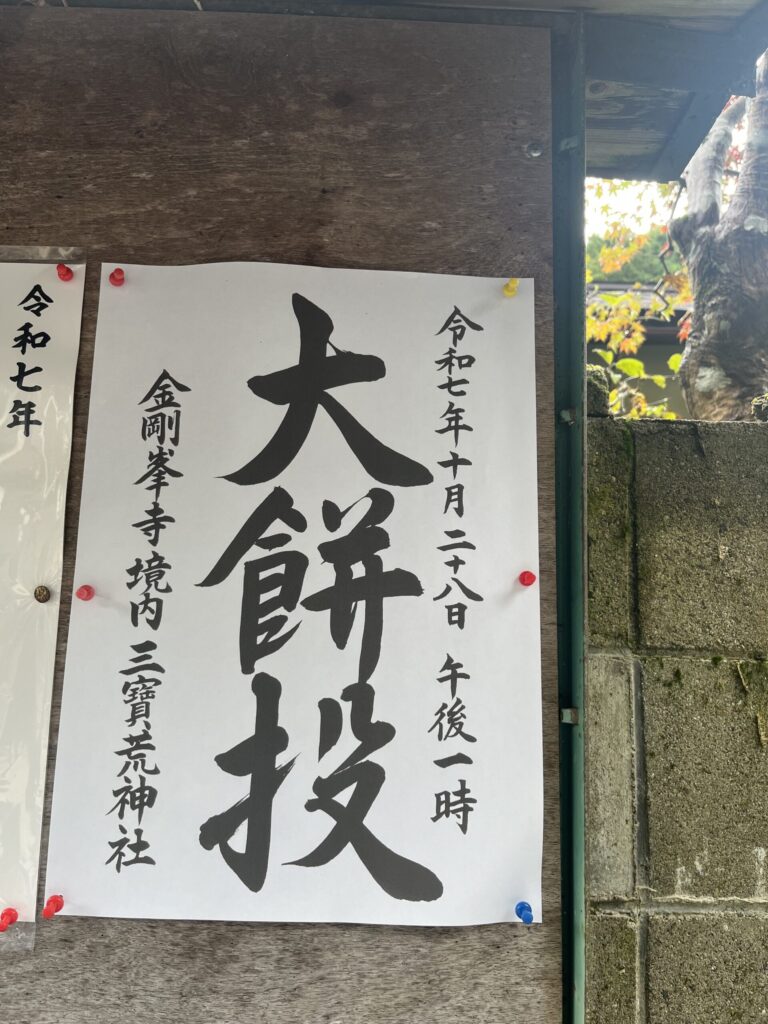 令和七年十月二十八日 午後一時
大餅投
金剛峯寺境内 三寶荒神社
令和七年